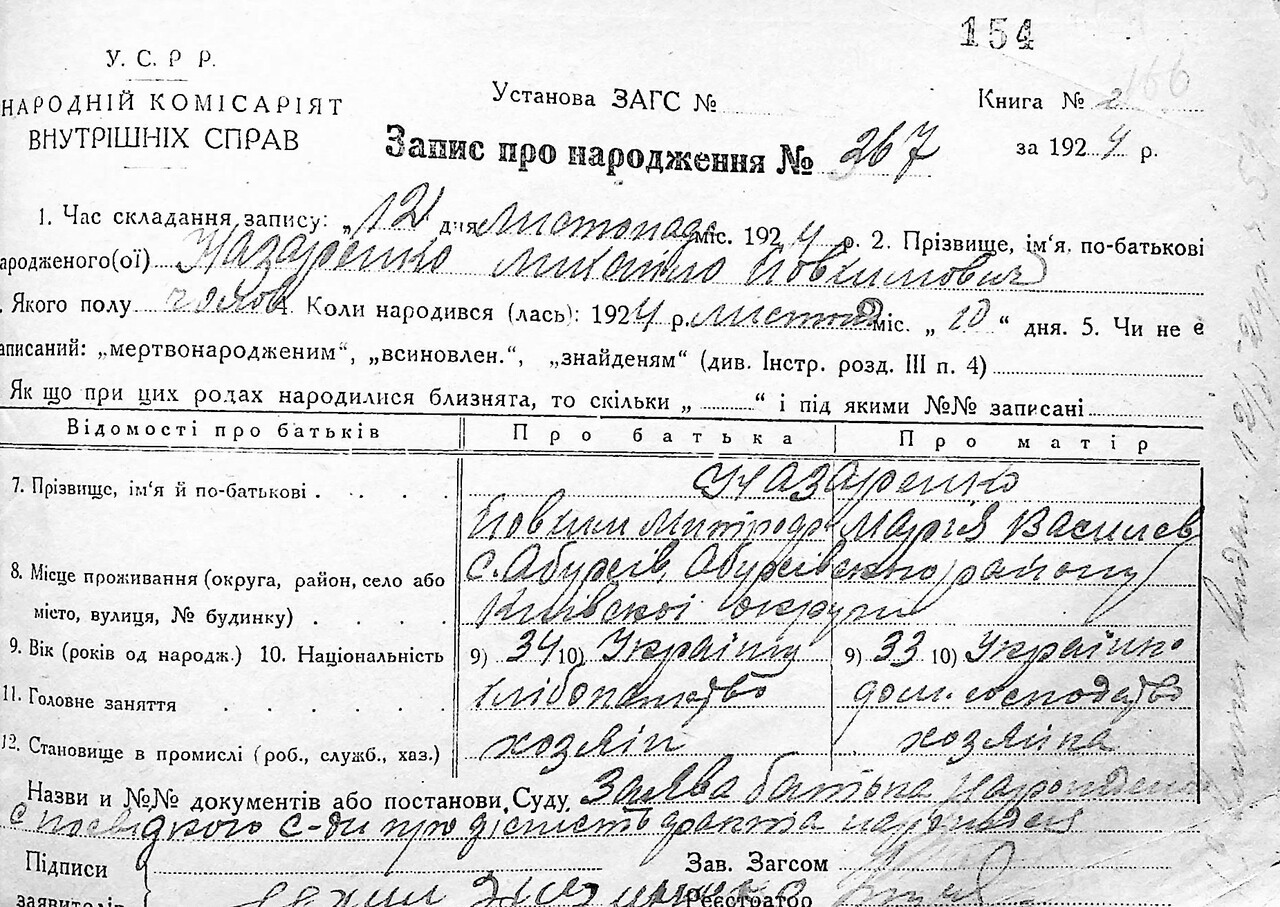 154
166
У. С. Р Р.
НАРОДНІЙ КОМІСАРІЯТ
ВНУТРІШНІХ СПРАВ
Установа ЗАГС №
Книга № 2
Запис про народження № 367
за 1924 р.
1. Час складання запису: „12" дня Листопада міс. 1924 р. 2. Прізвище, ім'я, по-батькові
ародженого(ої) Назаренко Михайло Йовхимович
. Якого полу чолов 4. Коли народився (лась): 1924 р. листопад міс. „ 10 “ дня. 5. Чи не є
аписаний: „мертвонародженим“, „всиновлен.“, „знайденям“ (див. Інстр. розд. III п. 4)
Як що при цих родах народилися близнята, то скільки „ “ і під якими №№ записані
Відомості про батьків Про батька Про матір
7. Прізвище, ім'я й по-батькові Назаренко
Йовхим Митрофа Марія Васильєв
8. Місце проживання (округа, район, село або с. Обухів, Обухівського району
місто, вулиця, № будинку) Київської округи
9. Вік (років од народж.) 10. Національність 9) 34 10) Українц 9) 33 10) Українка
11. Головне заняття хлібопашество дом. господарство
12. Становище в промислі (роб., служб., хаз.) хозяїн хозяйка
Назви и №№ документів або постанови Суду Заява батька народжено
с посвідкою с-ди про дійсність факта народження
Підписи Зав. Загсом
заявителів Реєстратор